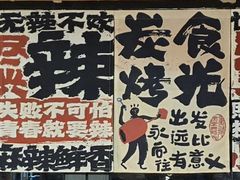 无辣不欢
尽兴
辣
失败不可怕
青春就要辣
麻辣鲜香
食光
炭烤
发比意义
出远者
永向往